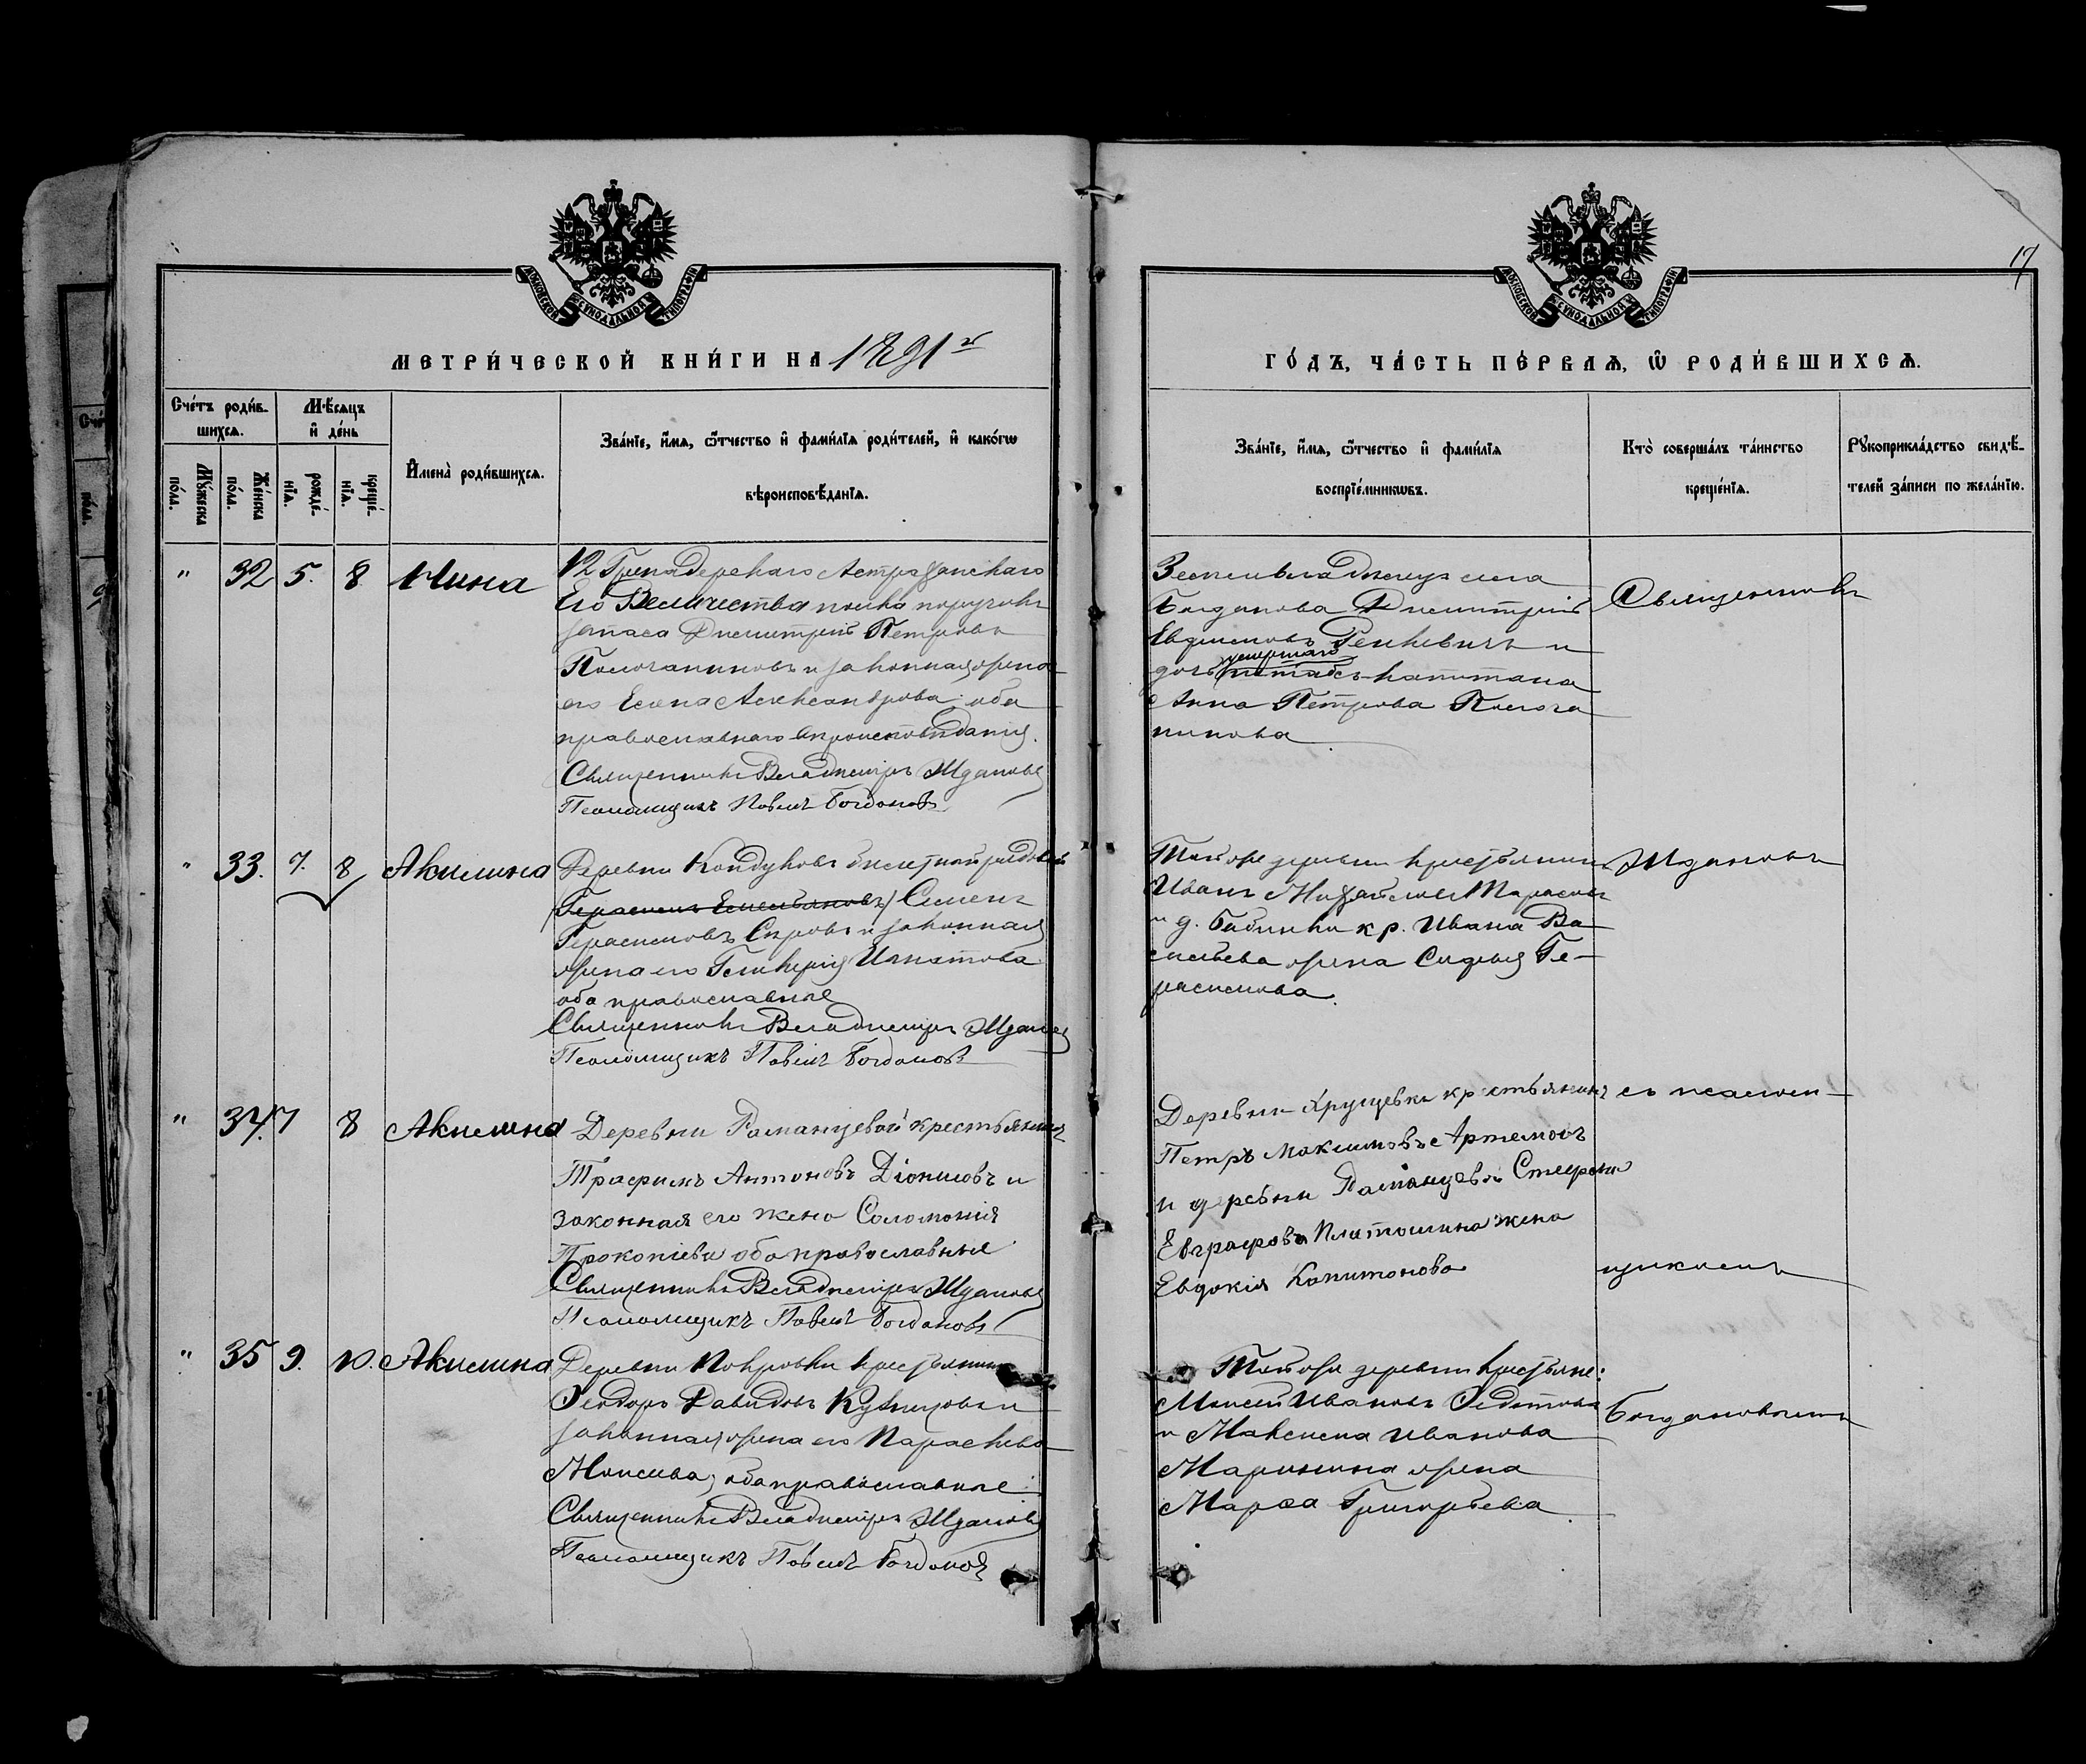 17
МОСКОВСКОЙ СУНОДАЛЬНОЙ ТИПОГРАФІИ
МОСКОВСКОЙ СУНОДАЛЬНОЙ ТИПОГРАФІИ
МЕТРИ́ЧЕСКОЙ КНИ́ГИ НА 1891 г
ГО́ДЪ, ЧА́СТЬ ПЕ́РВАѦ, Ѿ РОДИ́ВШИХСѦ.
Сче́тъ роди́в-
шихсѧ.
Мꙋ́жеска
по́ла.
Же́нска
по́ла.
Мѣ́сѧцъ
и҆ де́нь
рожде́-
нїѧ.
креще́-
нїѧ.
И҆мена̀ роди́вшихсѧ.
Зва́нїе, и҆́мѧ, ѻ҆́тчество и҆ фамѝлїѧ роди́телей, и҆ како́гѡ
вѣроисповѣ́данїѧ.
Зва́нїе, и҆́мѧ, ѻ҆́тчество и҆ фамѝлїѧ
воспрїе́мникѡвъ.
Кто̀ соверша́лъ та́инство
креще́нїѧ.
Рꙋкоприкла́дство свидѣ́-
телей за́писи по жела́нїю.
" 32 5. 8 Нина
12 Гренадерскаго Астраханскаго
Его Величества полка поручикъ
запаса Дмитрій Петровъ
Полочаниновъ и законная жена
его Елена Александрова оба
православнаго вѣроисповѣданія.
Священникъ Владиміръ Ждановъ
Псаломщикъ Павелъ Богдановъ
Землевладѣлецъ села
Богданова Димитрій
Евфимовъ Генкевичъ и
дочь умершаго штабсъ-капитана
Анна Петрова Полоча
нинова
Священникъ
" 33. 7. 8 Акилина
Деревни Кондуковъ билетный рядовой
Герасимъ Емельяновъ Симеонъ
Герасимовъ и законная
жена его Гликерія Игнатова
оба православные
Священникъ Владиміръ Ждановъ
Псаломщикъ Павелъ Богдановъ
Той же деревни крестьянинъ
Иванъ Михайловъ Тарасовъ
и д. Бабинки кр. Ивана Ва-
сильева жена Ге-
расимова.
Ждановъ
" 34. 7 8 Акилина
Деревни Раманцевой крестьянинъ
Трафимъ Антоновъ Діонисовъ и
законная его жена Соломонія
Прокопіева оба православныя
Священникъ Владиміръ Ждановъ
Псаломщикъ Павелъ Богдановъ
Деревни Хрущевки крестьянинъ
Петръ Максимовъ Артемовъ
и деревни Раманцевой
Евграфова Платошина жена
Евдокія Капитонова
съ псалом-
щикомъ
" 35 9. 10. Акилина
Деревни Покровки крестьянинъ
Ѳеодоръ Давидовъ Кузнецовъ и
законная жена его Параскева
Моисеева, оба православные
Священникъ Владиміръ Ждановъ
Псаломщикъ Павелъ Богдановъ
Той же деревни крестьяне:
Моисей Ивановъ Ѳедотовъ
и Максима Иванова
Маринина жена
Марѳа Григорьева
Богдановымъ